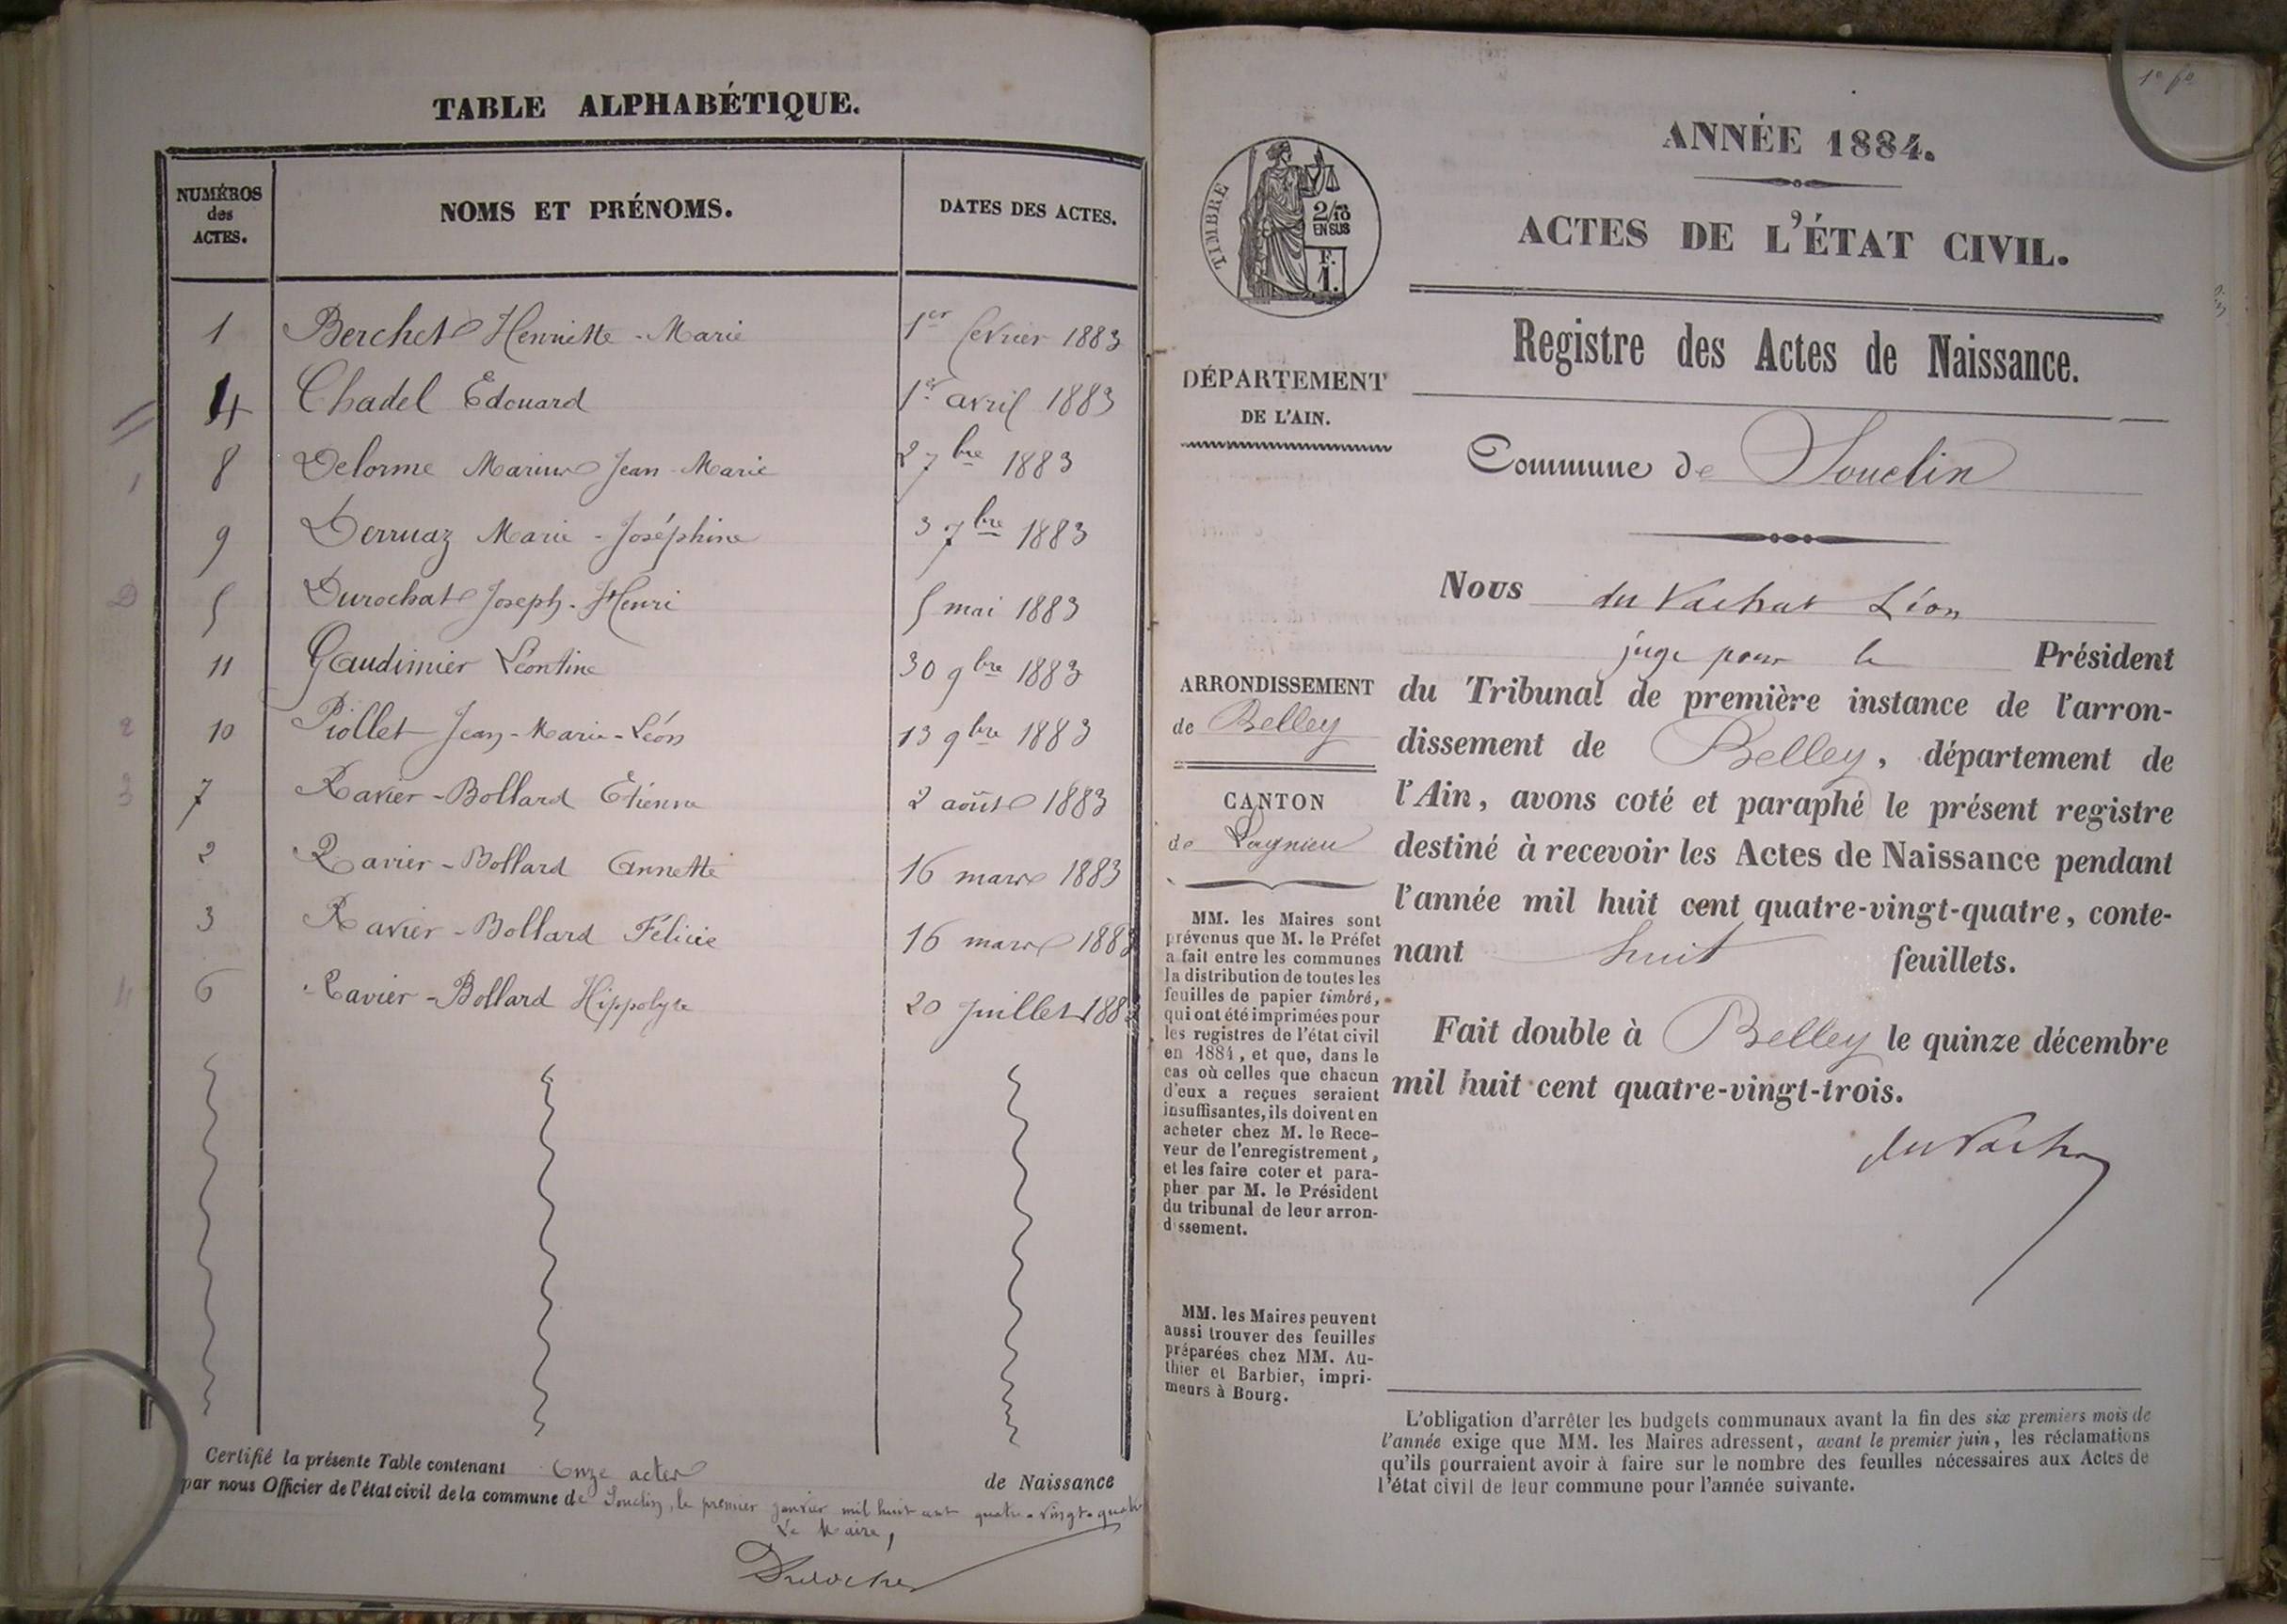 TABLE ALPHABÉTIQUE.
NUMÉROS des ACTES. NOMS ET PRÉNOMS. DATES DES ACTES.
1 Berchet Henriette-Marie 1er fevrier 1883
4 Chadel Edouard 1er avril 1883
8 Delorme Marius Jean-Marie 2 7bre 1883
9 Derruaz Marie-Joséphine 3 7bre 1883
5 Durochat Joseph-Henri 5 mai 1883
11 Gaudimier Léontine 30 9bre 1883
10 Piollet Jean-Marie-Léon 13 9bre 1883
7 Ravier-Bollard Etienne 2 août 1883
2 Ravier-Bollard Annette 16 mars 1883
3 Ravier-Bollard Félicie 16 mars 1883
6 Ravier-Bollard Hippolyte 20 Juillet 1883
Certifié la présente Table contenant Onze actes de Naissance
par nous Officier de l'état civil de la commune de Souclin, le premier janvier mil huit cent quatre-vingt-quatre
Le Maire,
1er fo
ANNÉE 1884.
ACTES DE L'ÉTAT CIVIL.
TIMBRE
2/10
EN SUS
F.
1.
Registre des Actes de Naissance.
DÉPARTEMENT
DE L'AIN.
Commune de Souclin
ARRONDISSEMENT
de Belley
CANTON
de Lagnieu
MM. les Maires sont
prévenus que M. le Préfet
a fait entre les communes
la distribution de toutes les
feuilles de papier timbré,
qui ont été imprimées pour
les registres de l'état civil
en 1884, et que, dans le
cas où celles que chacun
d'eux a reçues seraient
insuffisantes, ils doivent en
acheter chez M. le Rece-
veur de l'enregistrement,
et les faire coter et para-
pher par M. le Président
du tribunal de leur arron-
dissement.
MM. les Maires peuvent
aussi trouver des feuilles
préparées chez MM. Au-
thier et Barbier, impri-
meurs à Bourg.
Nous du Vachat Léon
juge pour le Président
du Tribunal de première instance de l'arron-
dissement de Belley, département de
l'Ain, avons coté et paraphé le présent registre
destiné à recevoir les Actes de Naissance pendant
l'année mil huit cent quatre-vingt-quatre, conte-
nant huit feuillets.
Fait double à Belley le quinze décembre
mil huit cent quatre-vingt-trois.
du Vachat
L'obligation d'arrêter les budgets communaux avant la fin des six premiers mois de
l'année exige que MM. les Maires adressent, avant le premier juin, les réclamations
qu'ils pourraient avoir à faire sur le nombre des feuilles nécessaires aux Actes de
l'état civil de leur commune pour l'année suivante.